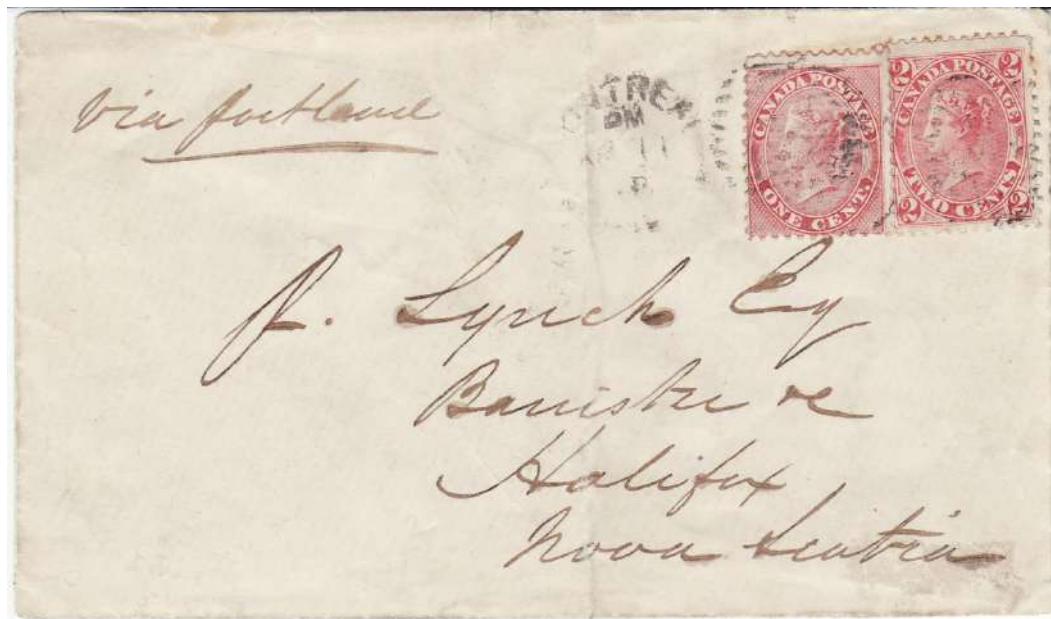 via Portland
MONTREAL
PM
11
CANADA POSTAGE
ONE CENT.
2 CANADA POSTAGE 2
2 TWO CENTS 2
P. Lynch Esq
Barrister &c
Halifax,
Nova Scotia